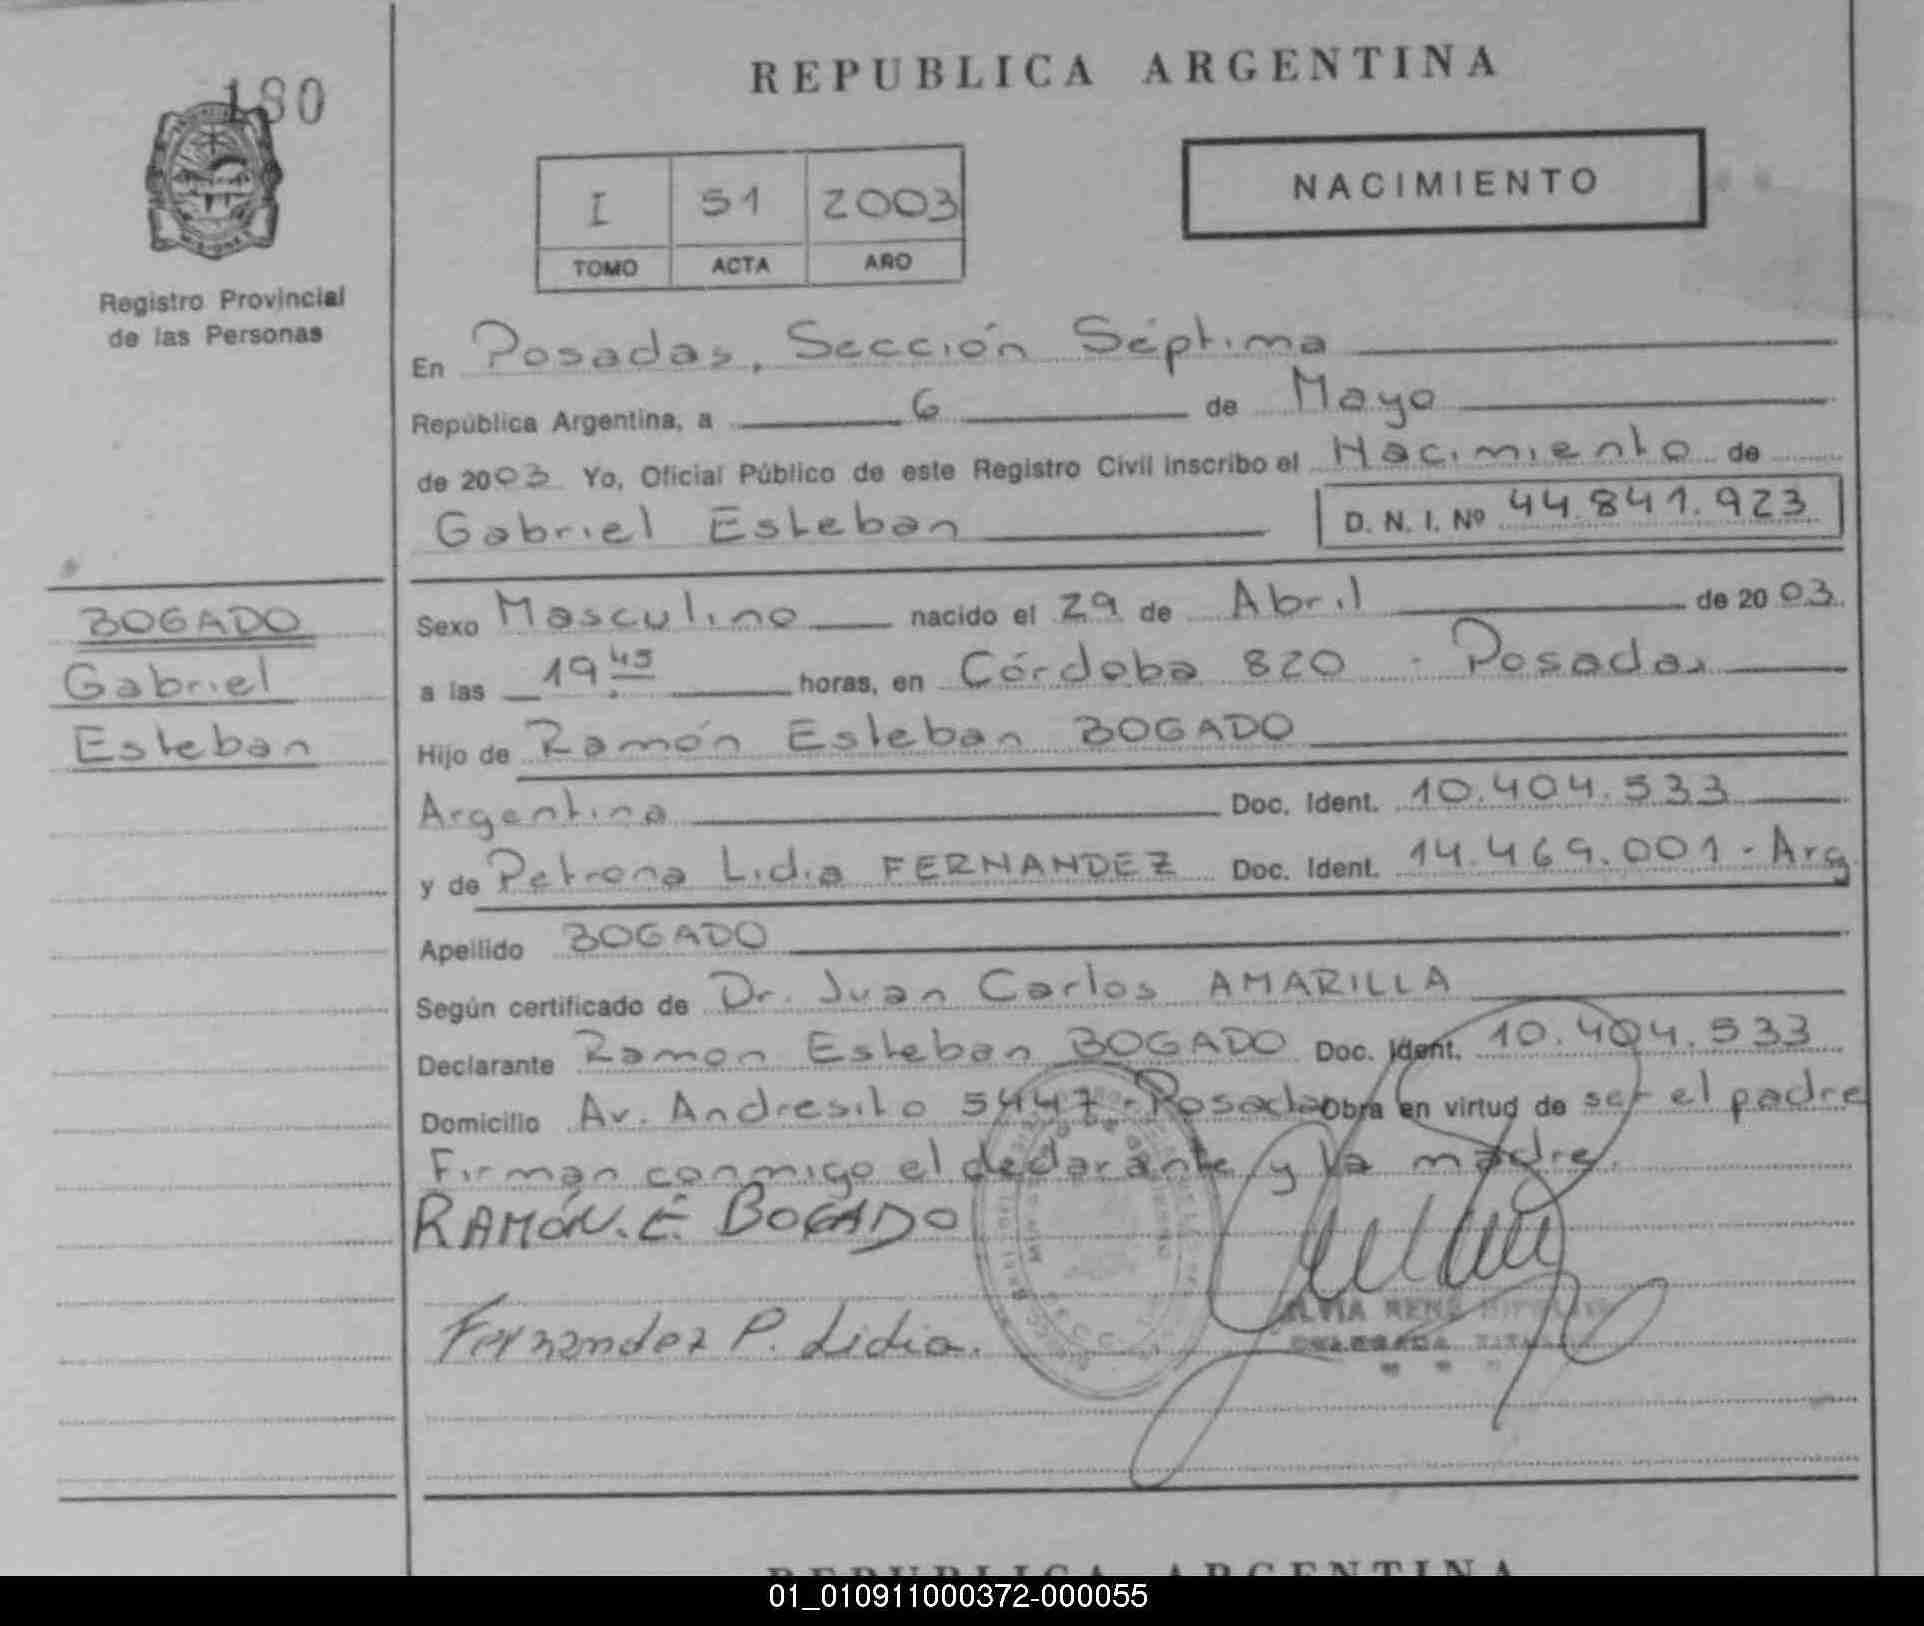 180
REPUBLICA ARGENTINA
I 51 2003
TOMO ACTA AÑO
NACIMIENTO
Registro Provincial
de las Personas
En Posadas, Sección Séptima
República Argentina, a 6 de Mayo
de 2003 Yo, Oficial Público de este Registro Civil inscribo el Nacimiento de
Gabriel Esteban D. N. I. Nº 44.841.923
BOGADO
Gabriel
Esteban
Sexo Masculino nacido el 29 de Abril de 2003.
a las 19 45 horas, en Córdoba 820 - Posadas
Hijo de Ramón Esteban BOGADO
Argentina Doc. Ident. 10.404.533
y de Petrona Lidia FERNANDEZ Doc. Ident. 14.469.001 - Arg
Apellido BOGADO
Según certificado de Dr. Juan Carlos AMARILLA
Declarante Ramon Esteban BOGADO Doc. Ident. 10.404.533
Domicilio Av. Andresito 5447 - Posadas Obra en virtud de ser el padre
Firman conmigo el declarante y la madre.
RAMÓN. E. BOGADO
Fernandez P. Lidia.
REPUBLICA ARGENTINA
01_010911000372-000055